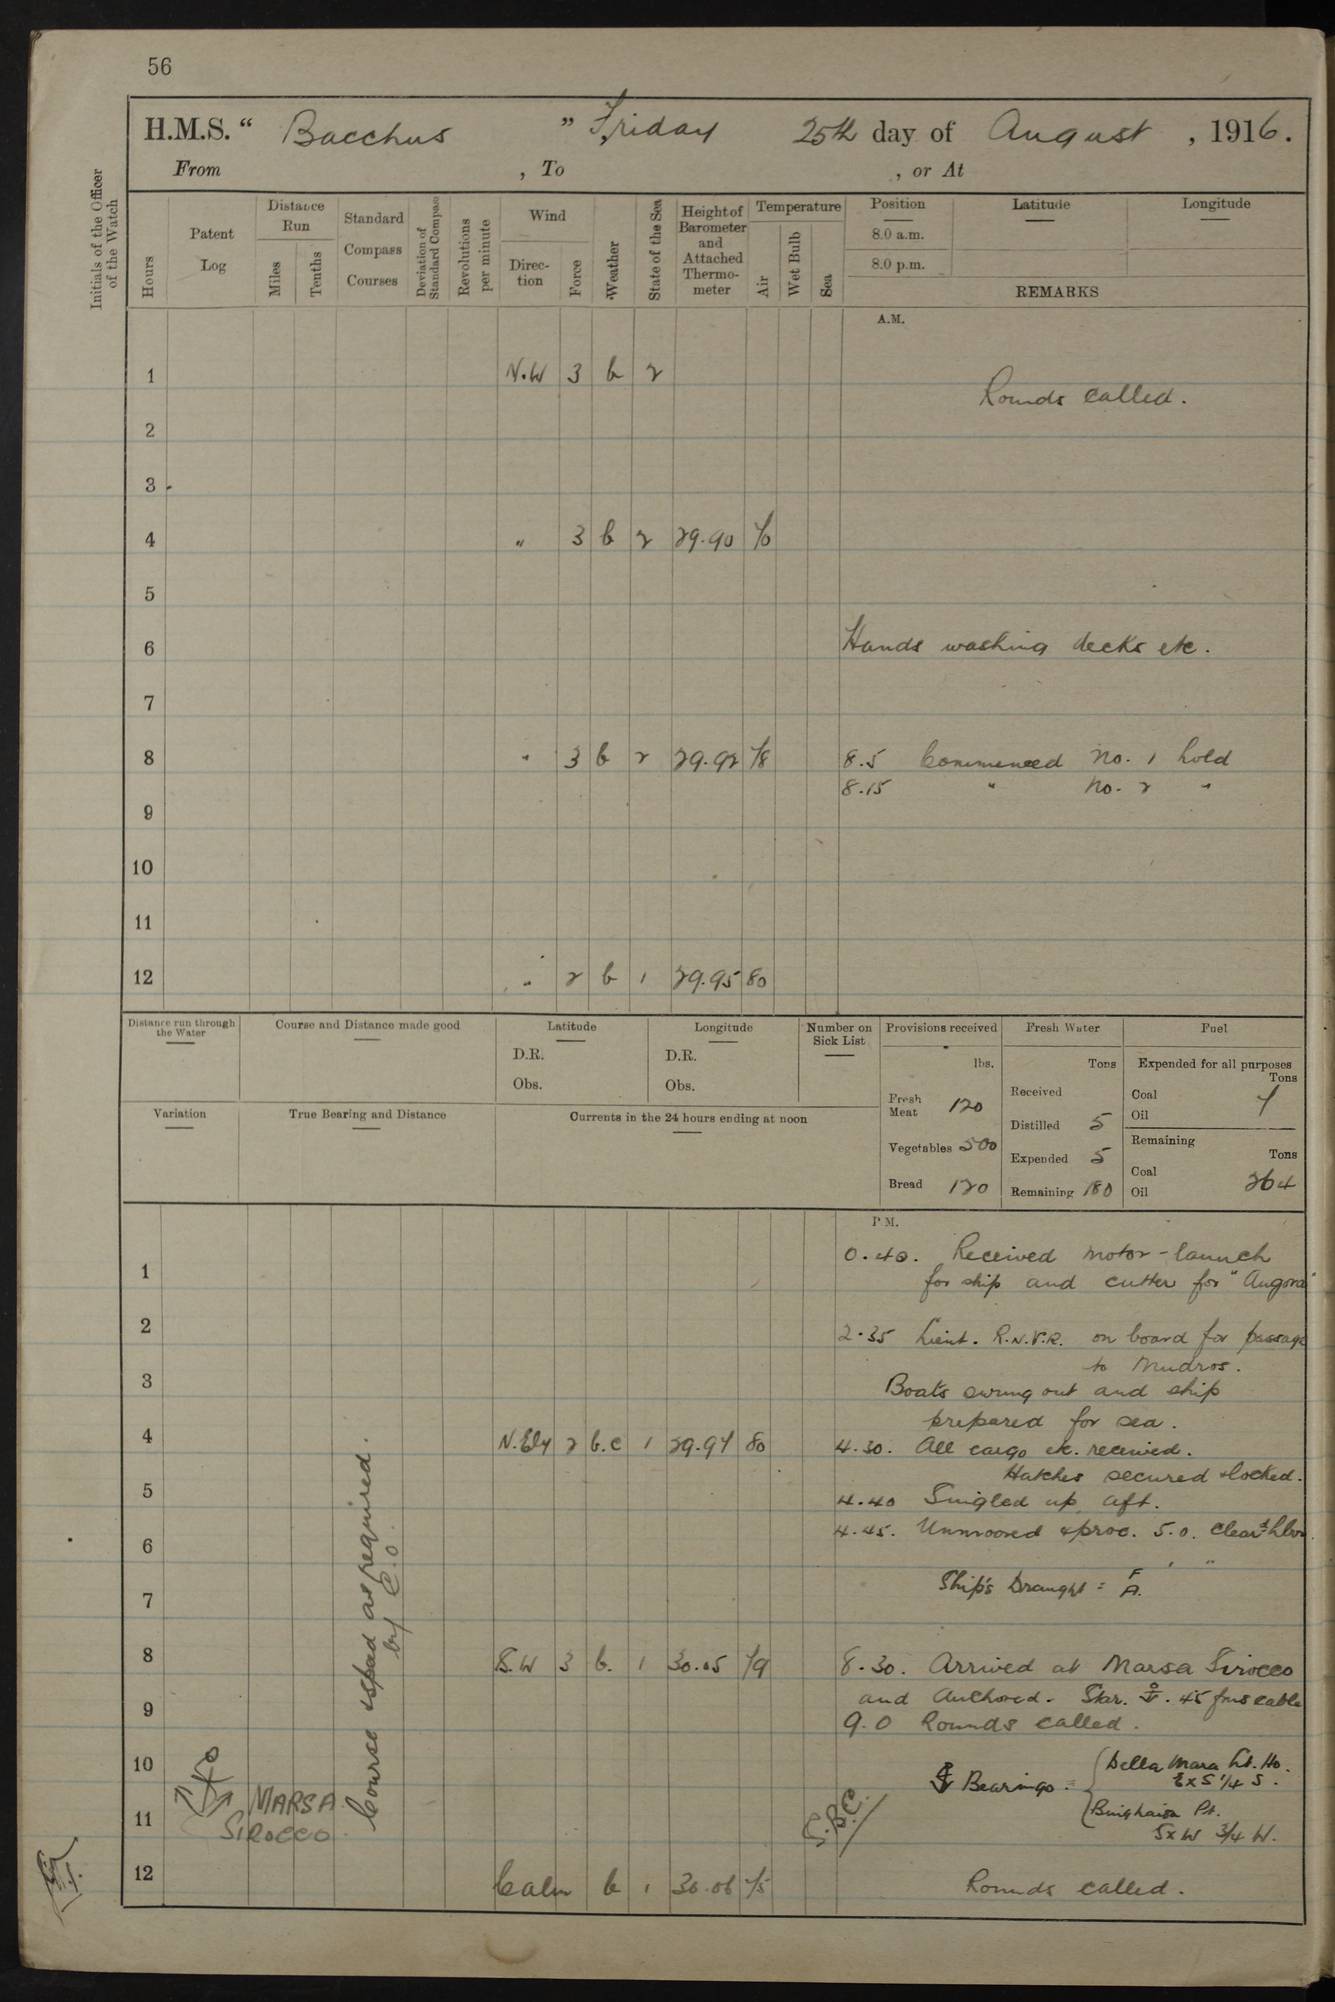 56
H.M.S. " Bacchus " Friday 25th day of August , 1916.
From , To , or At
Initials of the Officer of the Watch
Hours
Patent Log
Distance Run
Miles
Tenths
Standard Compass Courses
Deviation of Standard Compass
Revolutions per minute
Wind
Direc-tion
Force
Weather
State of the Sea
Height of Barometer and Attached Thermo-meter
Temperature
Air
Wet Bulb
Sea
Position Latitude Longitude
8.0 a.m.
8.0 p.m.
REMARKS
A.M.
1 N.W 3 b 2
Rounds called.
2
3
4 " 3 b 2 29.90 70
5
6 Hands washing decks etc.
7
8 " 3 b 2 29.92 78 8.5 Commenced No. 1 hold
8.15 " No. 2 "
9
10
11
12 " 2 b 1 29.95 80
Distance run through the Water
Course and Distance made good
Latitude
D.R.
Obs.
Longitude
D.R.
Obs.
Number on Sick List
Provisions received
lbs.
Fresh Meat 120
Vegetables 500
Bread 120
Fresh Water
Tons
Received
Distilled 5
Expended 5
Remaining 180
Fuel
Expended for all purposes
Tons
Coal
Oil
7
Remaining
Tons
Coal
Oil
264
Variation
True Bearing and Distance
Currents in the 24 hours ending at noon
P.M.
0.40. Received motor-launch
1 for ship and cutter for "Angora"
2 2.35 Lieut. R.N.V.R. on board for passage
to Mudros.
3 Boats swung out and ship
prepared for sea.
4 N.Ely 2 b.c 1 29.97 80 4.30. All cargo etc. received.
Hatches secured & locked.
5 4.40 Singled up aft.
4.45. Unmoored & proc. 5.0. Clear
6
7 Ship's Draught = F A.
8 S.W 3 b. 1 30.05 79 8.30. Arrived at Marsa Sirocco
and Anchored. Star. 45 fms cable
9 9.0 Rounds called.
Course & spd as required by C.O.
10 Bearings = Della Mara Lt. Ho.
E x S 1/4 S.
MARSA SIROCCO
11 Pt.
S x W 3/4 W.
12 Calm b 1 30.06 75 Rounds called.